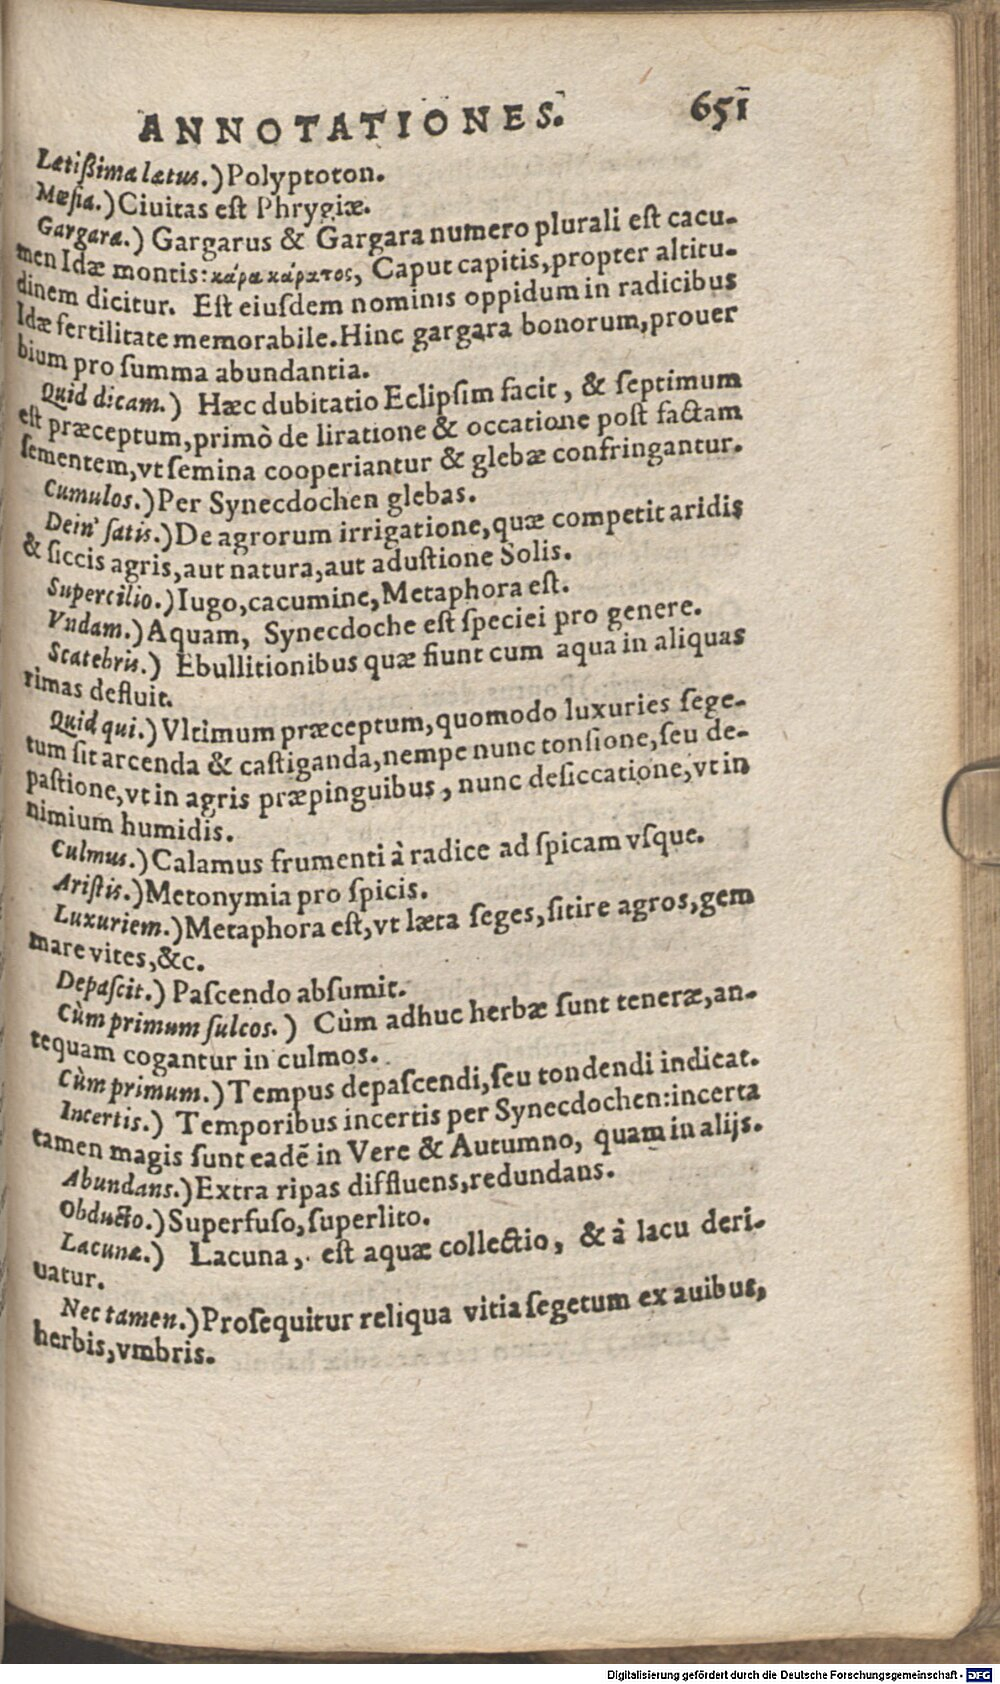 ANNOTATIONES. 651
Lætißima lætus.) Polyptoton.
Mœſia.) Ciuitas eſt Phrygiæ.
Gargara.) Gargarus & Gargara numero plurali eſt cacu-
men Idæ montis: κάρα κάρατος, Caput capitis, propter altitu-
dinem dicitur. Eſt eiuſdem nominis oppidum in radicibus
Idæ fertilitate memorabile. Hinc gargara bonorum, prouer
bium pro ſumma abundantia.
Quid dicam.) Hæc dubitatio Eclipſim facit, & ſeptimum
eſt præceptum, primò de liratione & occatione poſt factam
ſementem, vt ſemina cooperiantur & glebæ confringantur.
Cumulos.) Per Synecdochen glebas.
Dein' ſatis.) De agrorum irrigatione, quæ competit aridis
& ſiccis agris, aut natura, aut aduſtione Solis.
Supercilio.) Iugo, cacumine, Metaphora eſt.
Vndam.) Aquam, Synecdoche eſt ſpeciei pro genere.
Scatebris.) Ebullitionibus quæ fiunt cum aqua in aliquas
rimas defluit.
Quid qui.) Vltimum præceptum, quomodo luxuries ſege-
tum ſit arcenda & caſtiganda, nempe nunc tonſione, ſeu de-
paſtione, vt in agris præpinguibus, nunc deſiccatione, vt in
nimium humidis.
Culmus.) Calamus frumenti à radice ad ſpicam vſque.
Ariſtis.) Metonymia pro ſpicis.
Luxuriem.) Metaphora eſt, vt læta ſeges, ſitire agros, gem
mare vites, &c.
Depaſcit.) Paſcendo abſumit.
Cùm primum ſulcos.) Cùm adhuc herbæ ſunt teneræ, an-
tequam cogantur in culmos.
Cùm primum.) Tempus depaſcendi, ſeu tondendi indicat.
Incertis.) Temporibus incertis per Synecdochen: incerta
tamen magis ſunt eadẽ in Vere & Autumno, quam in alijs.
Abundans.) Extra ripas diffluens, redundans.
Obducto.) Superfuſo, ſuperlito.
Lacunæ.) Lacuna, eſt aquæ collectio, & à lacu deri-
uatur.
Nec tamen.) Proſequitur reliqua vitia ſegetum ex auibus,
herbis, vmbris.
Digitalisierung gefördert durch die Deutsche Forschungsgemeinschaft - DFG